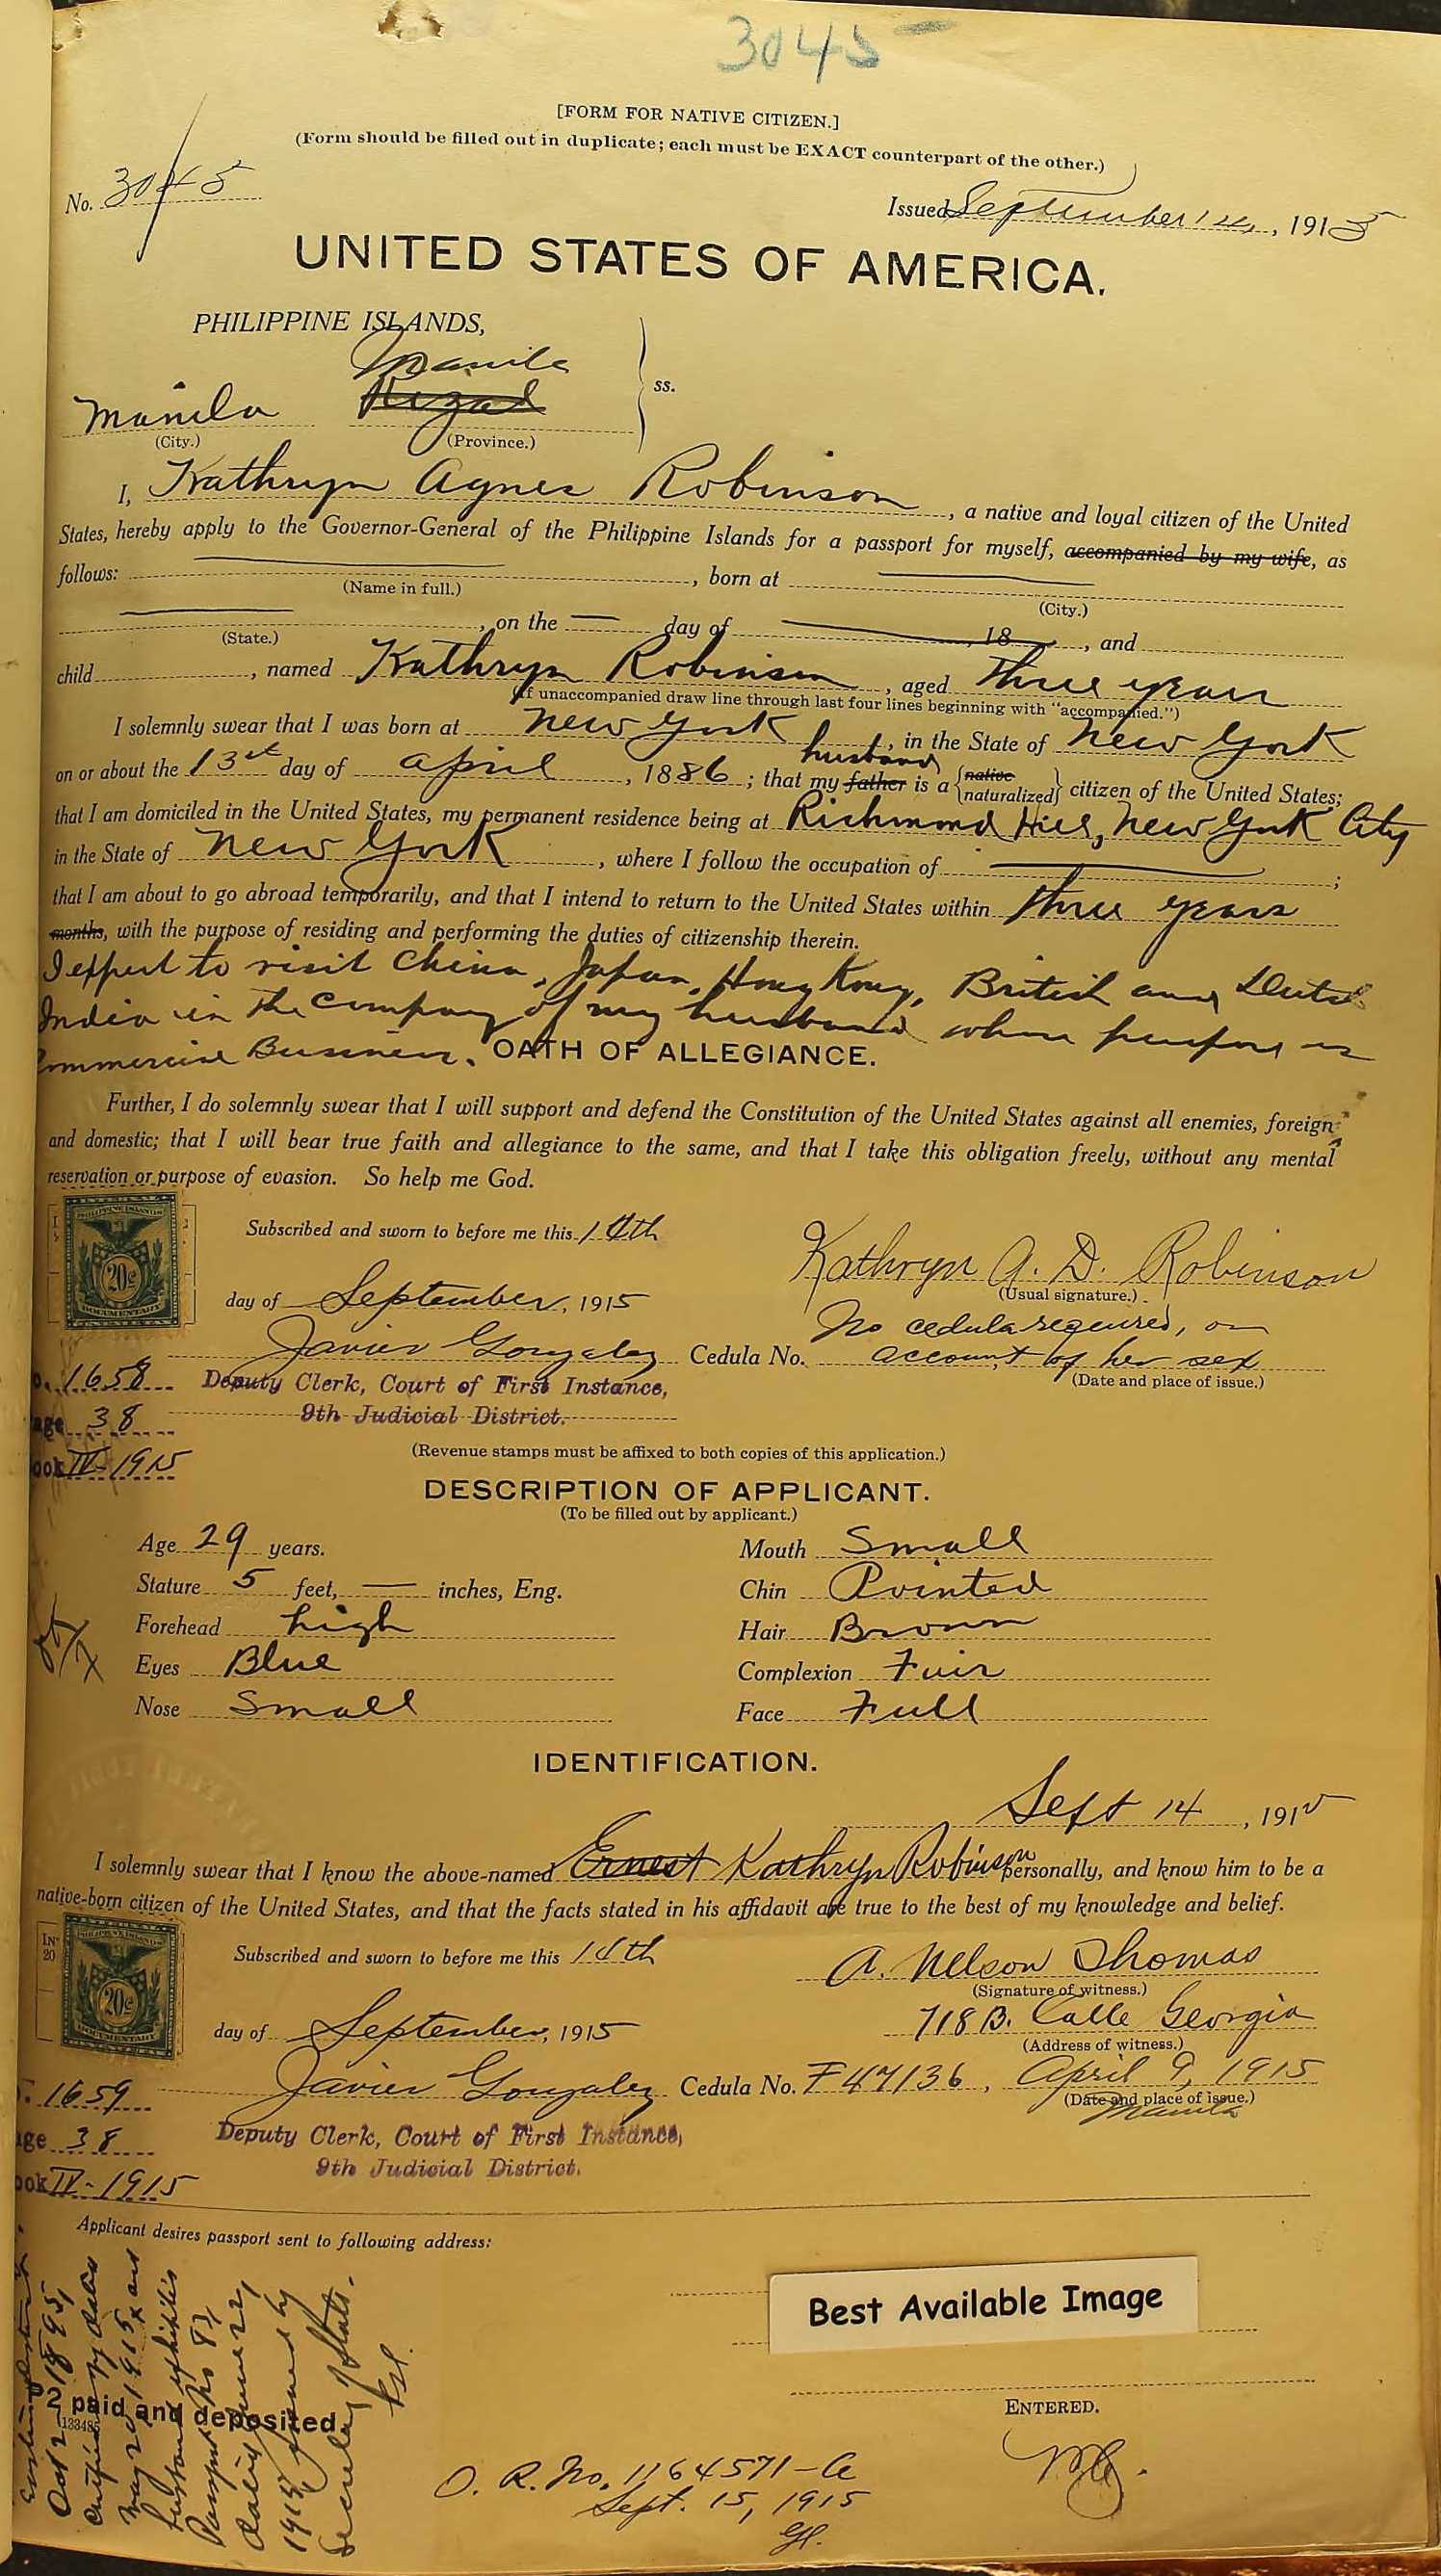 3045
[FORM FOR NATIVE CITIZEN.]
(Form should be filled out in duplicate; each must be EXACT counterpart of the other.)
No. 3045
Issued September 14, 1915
UNITED STATES OF AMERICA.
PHILIPPINE ISLANDS,
Manila
Manila Rizal ss.
(City.) (Province.)
I, Kathryn Agnes Robinson, a native and loyal citizen of the United
States, hereby apply to the Governor-General of the Philippine Islands for a passport for myself, accompanied by my wife, as
follows: , born at
(Name in full.) (City.)
, on the — day of , 18 , and
(State.)
child , named Kathryn Robinson, aged three years
(If unaccompanied draw line through last four lines beginning with "accompanied.")
I solemnly swear that I was born at New York, in the State of New York
husband
on or about the 13st day of April, 1886; that my father is a {native naturalized} citizen of the United States;
that I am domiciled in the United States, my permanent residence being at Richmond Hill, New York City
in the State of New York, where I follow the occupation of ;
that I am about to go abroad temporarily, and that I intend to return to the United States within three years
months, with the purpose of residing and performing the duties of citizenship therein.
I expect to visit China, Japan, Hong Kong, British and Dutch
India in the company of my husband whose purpose is
Commercial Business.
OATH OF ALLEGIANCE.
Further, I do solemnly swear that I will support and defend the Constitution of the United States against all enemies, foreign
and domestic; that I will bear true faith and allegiance to the same, and that I take this obligation freely, without any mental
reservation or purpose of evasion. So help me God.
PHILIPPINE ISLANDS
20c
DOCUMENTARY
Subscribed and sworn to before me this 14th
Kathryn A. D. Robinson
(Usual signature.)
day of September, 1915
No cedula required, on
Javier Gonzalez Cedula No. account of her sex
(Date and place of issue.)
o. 1658
Deputy Clerk, Court of First Instance,
age 38
9th Judicial District.
ook IV-1915
(Revenue stamps must be affixed to both copies of this application.)
DESCRIPTION OF APPLICANT.
(To be filled out by applicant.)
Age 29 years. Mouth Small
Stature 5 feet, — inches, Eng. Chin Pointed
Forehead high Hair Brown
Eyes Blue Complexion Fair
Nose Small Face Full
IDENTIFICATION.
Sept 14, 1915
I solemnly swear that I know the above-named Ernest Kathryn Robinson personally, and know him to be a
native-born citizen of the United States, and that the facts stated in his affidavit are true to the best of my knowledge and belief.
PHILIPPINE ISLANDS
20c
DOCUMENTARY
Subscribed and sworn to before me this 14th
A. Nelson Thomas
(Signature of witness.)
718 B. Calle Georgia
(Address of witness.)
day of September, 1915
Javier Gonzalez Cedula No. F 47136, April 9, 1915
(Date and place of issue.)
Manila
. 1659
age 38
Deputy Clerk, Court of First Instance,
9th Judicial District.
ook IV-1915
Applicant desires passport sent to following address:
Best Available Image
Oct 2 1895
May 20 1915
Passport No 87
dated June 22,
1915, issued by
Secretary of State.
2 paid and deposited
133485
ENTERED.
O. R. No. 1164571-A
Sept. 15, 1915